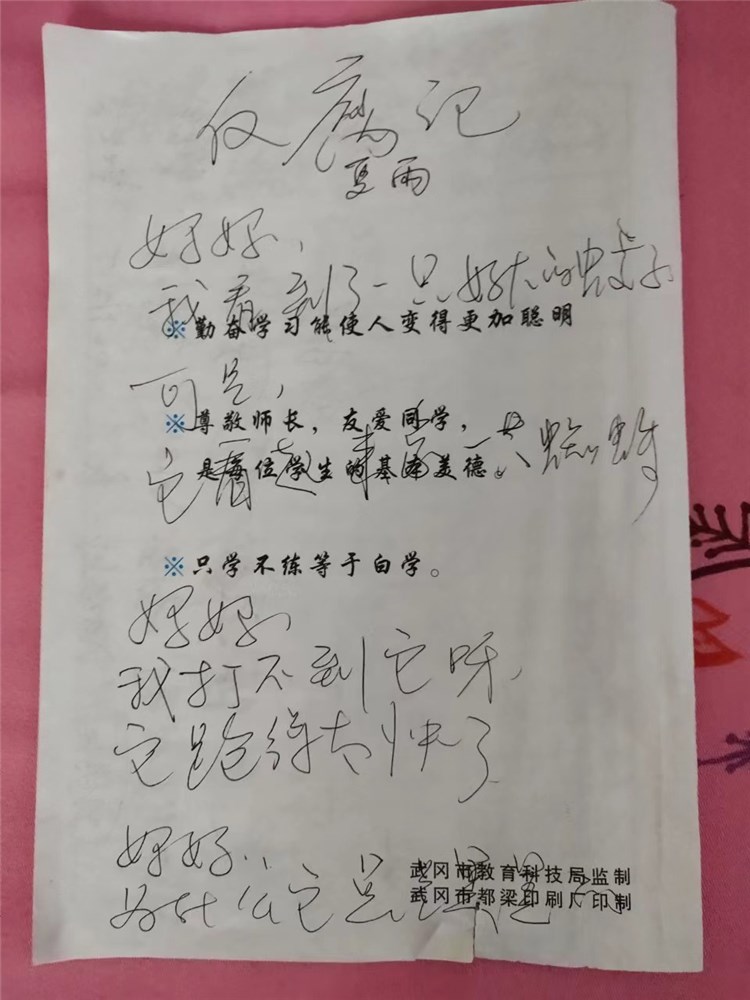 反腐记
夏雨
妈妈，
我看到了一只好大的蚊子
※勤奋学习能使人变得更加聪明
可是，
※尊敬师长，友爱同学，
它看起来像一只蜘蛛
是每位学生的基本美德。
※只学不练等于白学。
妈妈，
我打不到它呀，
它跑得太快了
妈妈，
武冈市教育科技局监制
为什么它总
武冈市都梁印刷厂印制